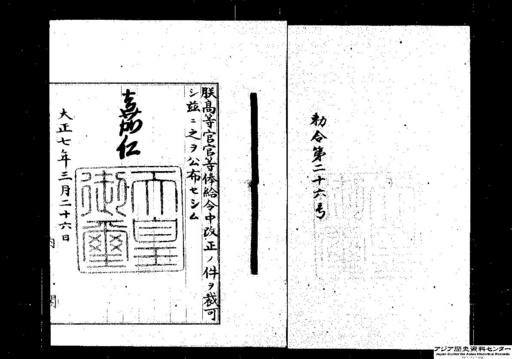 勅令第二十六号
朕高等官官等俸給令中改正ノ件ヲ裁可
シ茲ニ之ヲ公布セシム
嘉仁
天皇御璽
大正七年三月二十六日
内閣
アジア歴史資料センター
Japan Center for Asian Historical Records